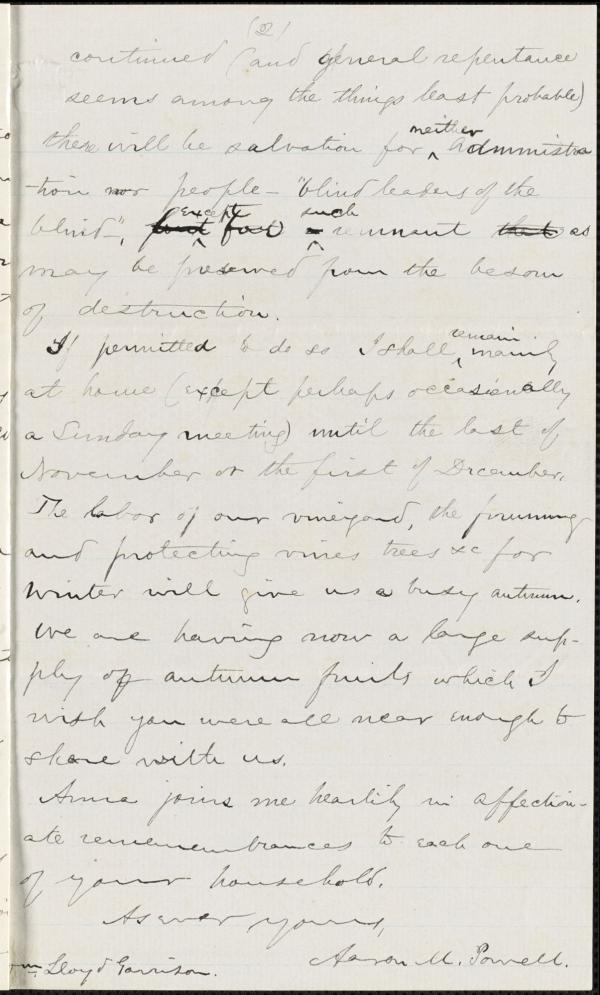 (2)
continued (and general repentance
seems among the things least probable)
there will be salvation for neither administra
-tion nor people - "blind leaders of the
blind", except for such remnant as
may be preserved from the besom
of destruction.
If permitted to do so I shall remain mainly
at home (except perhaps occasionally
a Sunday meeting) until the last of
November or the first of December.
The labor of our vineyard, the pruning
and protecting vines trees &c for
winter will give us a busy autumn.
We are having now a large sup-
ply of autumn fruits which I
wish you were all near enough to
share with us.
Anna joins me heartily in affection-
ate remembrances to each one
of your household.
As ever yours,
Aaron M. Powell.
Wm. Lloyd Garrison.